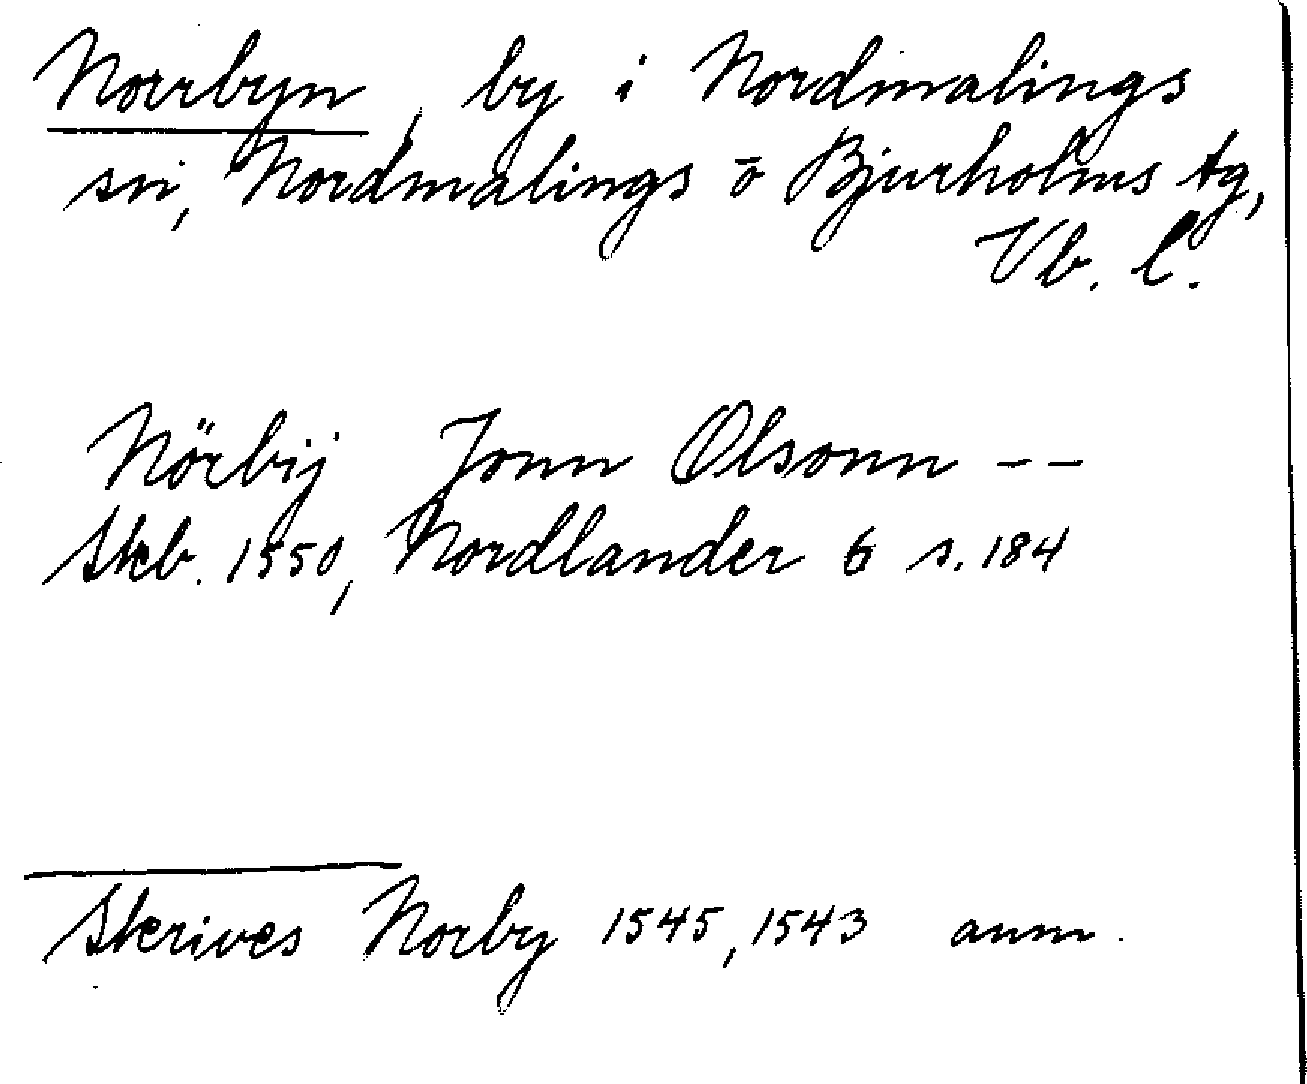 Norrbyn, by i Nordmalings
sn, Nordmalings o Bjurholms tg,
Vb. l.
Nörbij Jonn Olsonn --
Skb. 1550, Nordlander 6 s. 184
Skrives Norby 1545, 1543 anm.